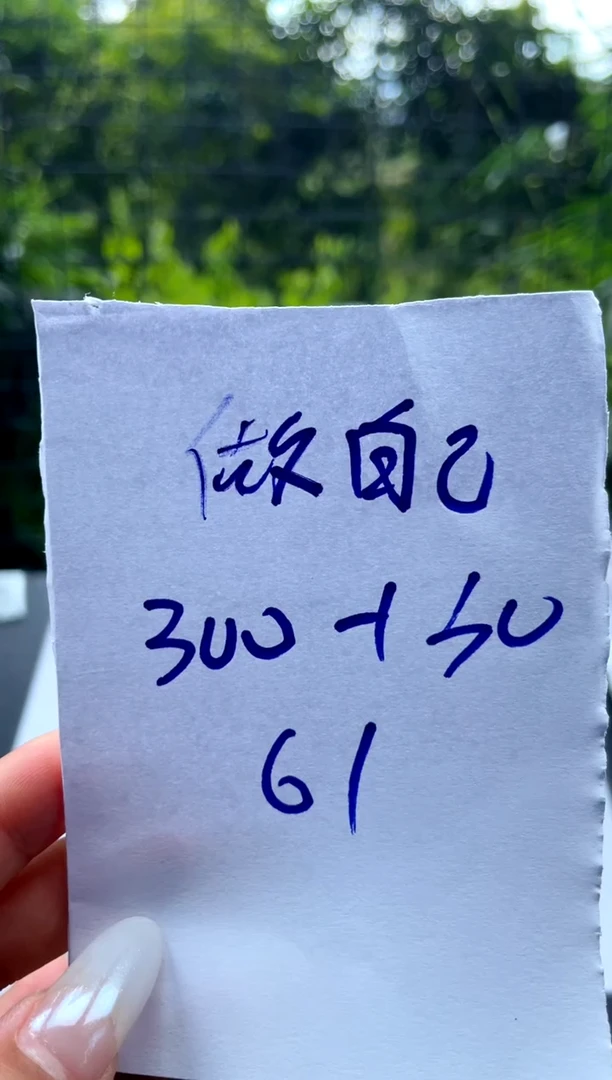 做自己
300+50
61